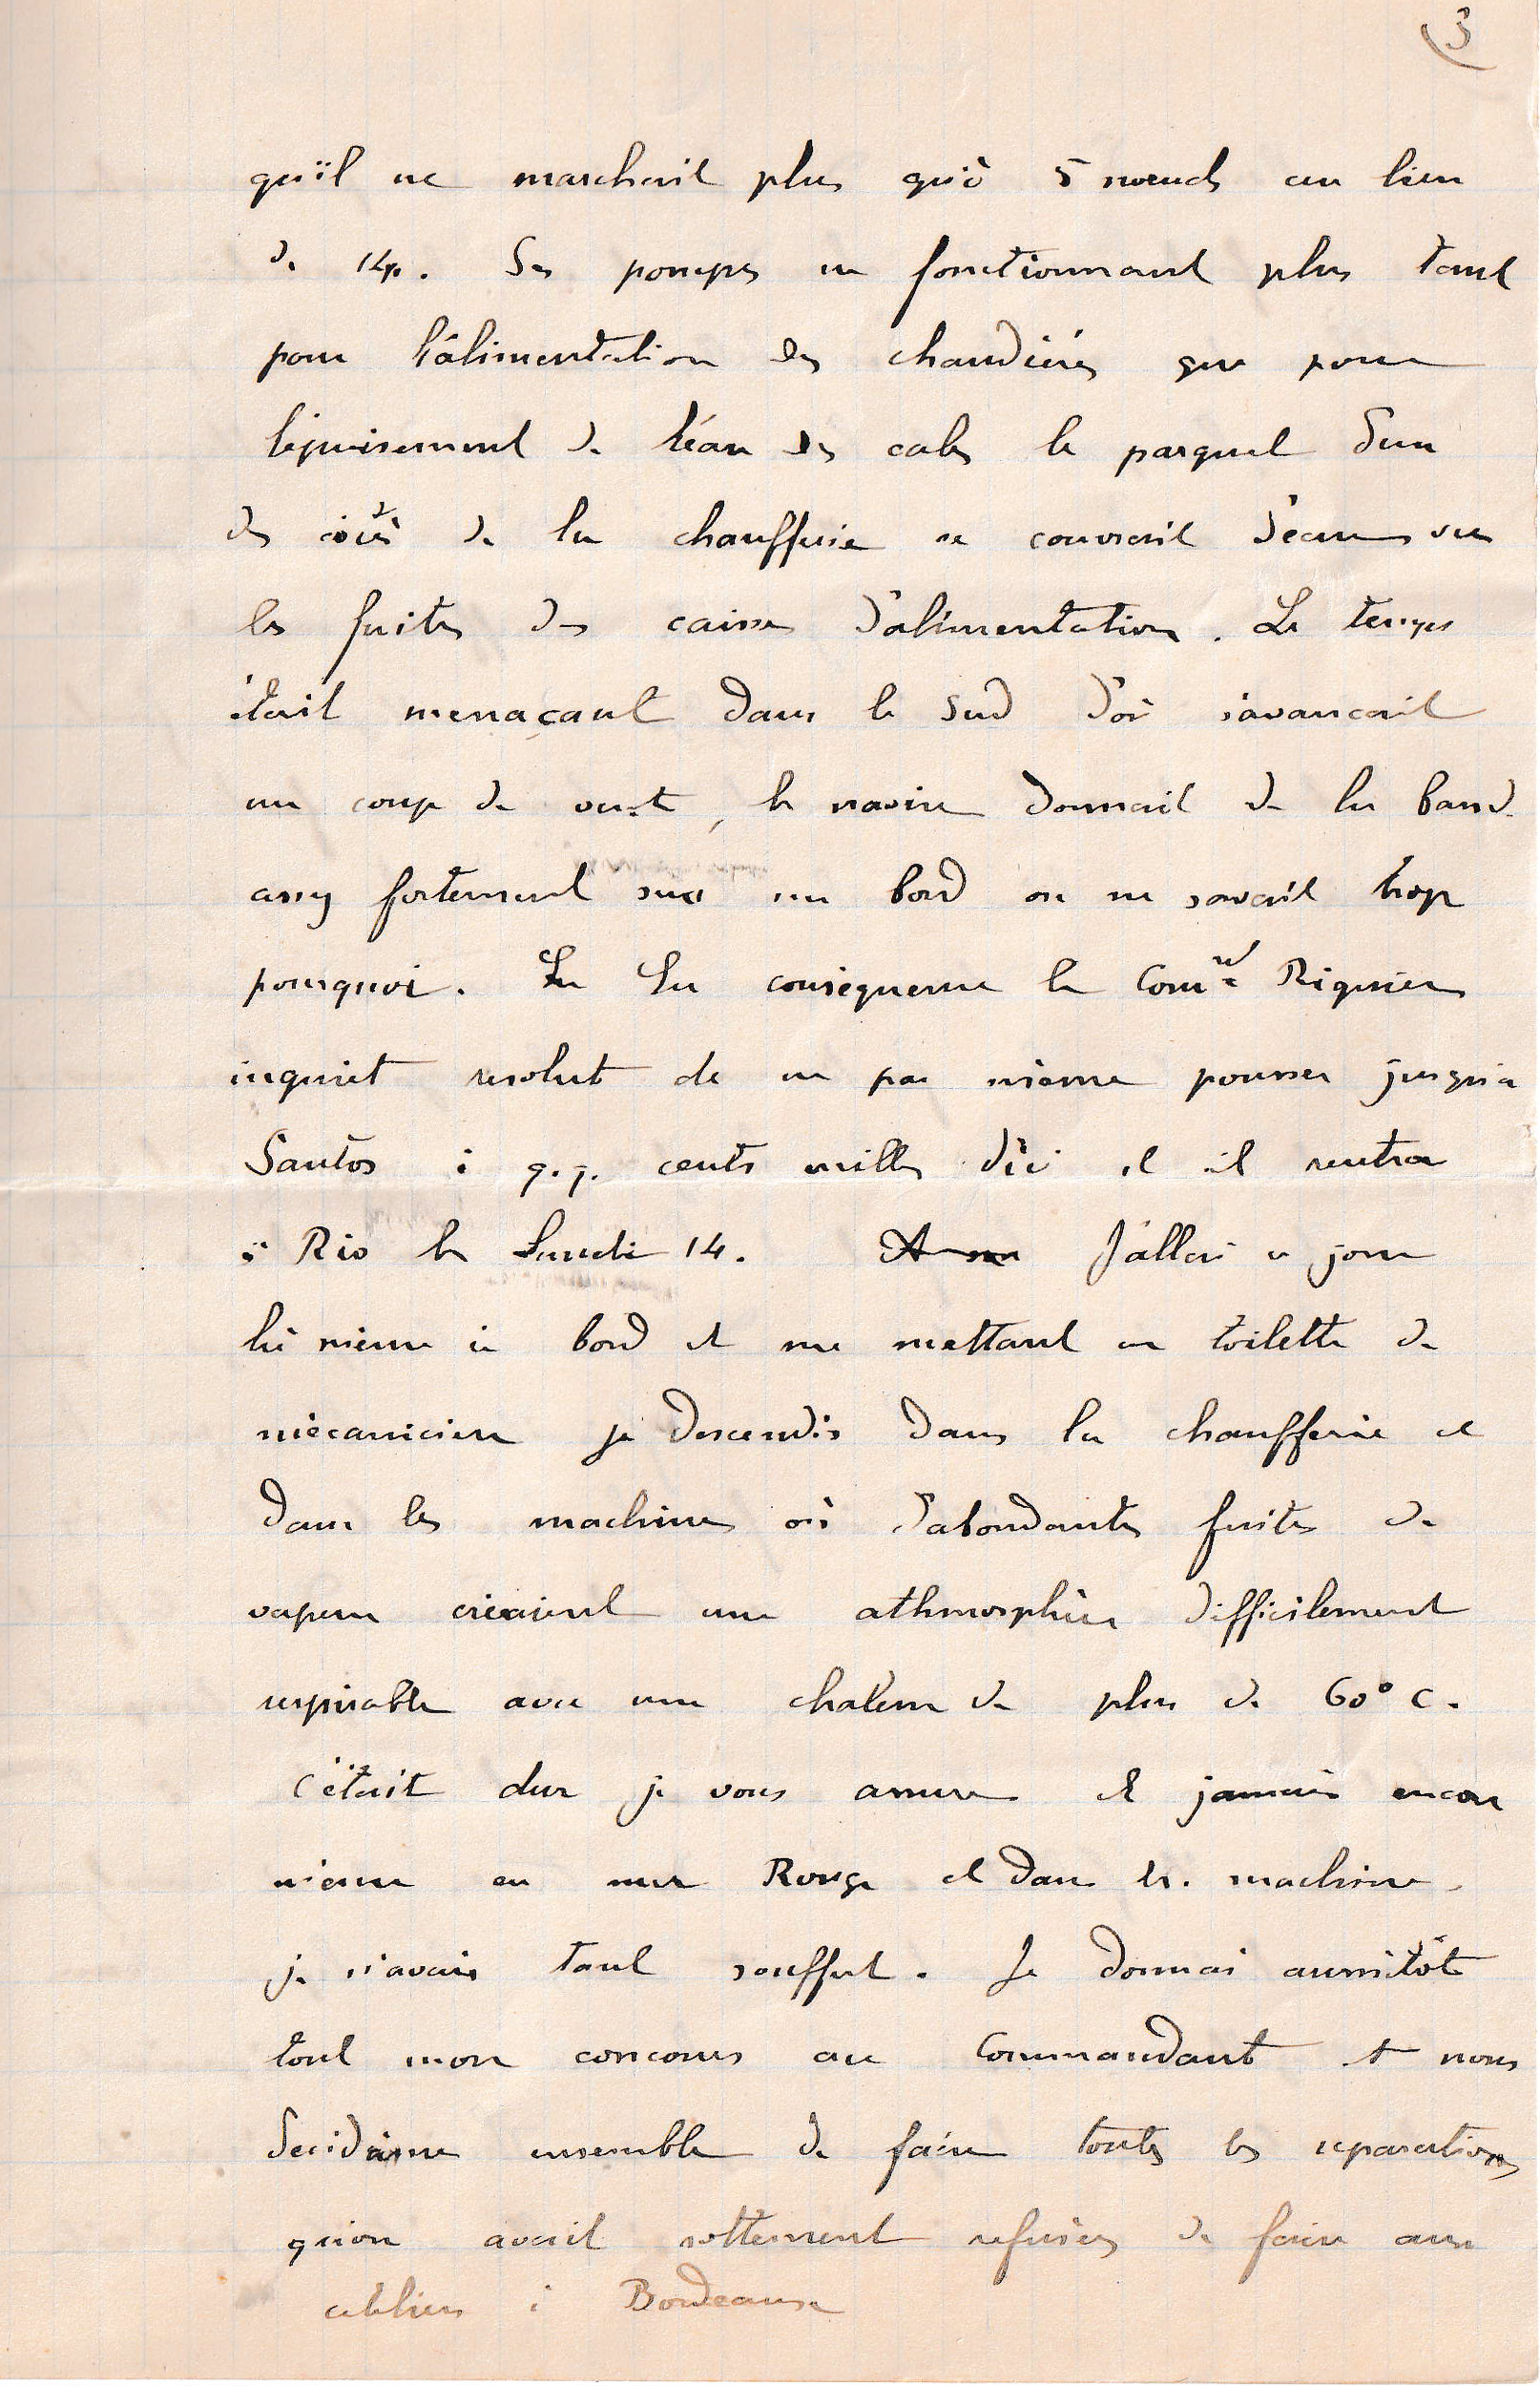 3
qu'il ne marchait plus qu'à 5 nœuds au lieu
de 14. Ses pompes ne fonctionnant plus tant
pour l'alimentation des chaudières que pour
l'épuisement de l'eau des cales le parquet d'un
des côtés de la chaufferie se couvrait d'eau vu
les fuites des caisses d'alimentation. Le temps
était menaçant dans le Sud d'où s'avancait
un coup de vent, le navire donnait de la bande
assez fortement sur un bord on ne savait trop
pourquoi. En conséquence le Comt Riquier
inquiet resolut de ne pas même pousser jusqu'à
Santos à q.q. cents milles d'ici et il rentra
à Rio le Lundi 14. J'allai ce jour
là même à bord et me mettant en toilette de
mécanicien je descendis dans la chaufferie et
dans les machines où d'abondantes fuites de
vapeur créaient une athmosphère difficilement
respirable avec une chaleur de plus de 60° C.
C'était dur je vous assure et jamais encore
même en mer Rouge et dans les machines
je n'avais tant souffert. Je donnai aussitôt
tout mon concours au Commandant et nous
décidâme ensemble de faire toutes les reparations
qu'on avait sottement refusées de faire aux
ateliers à Bordeaux